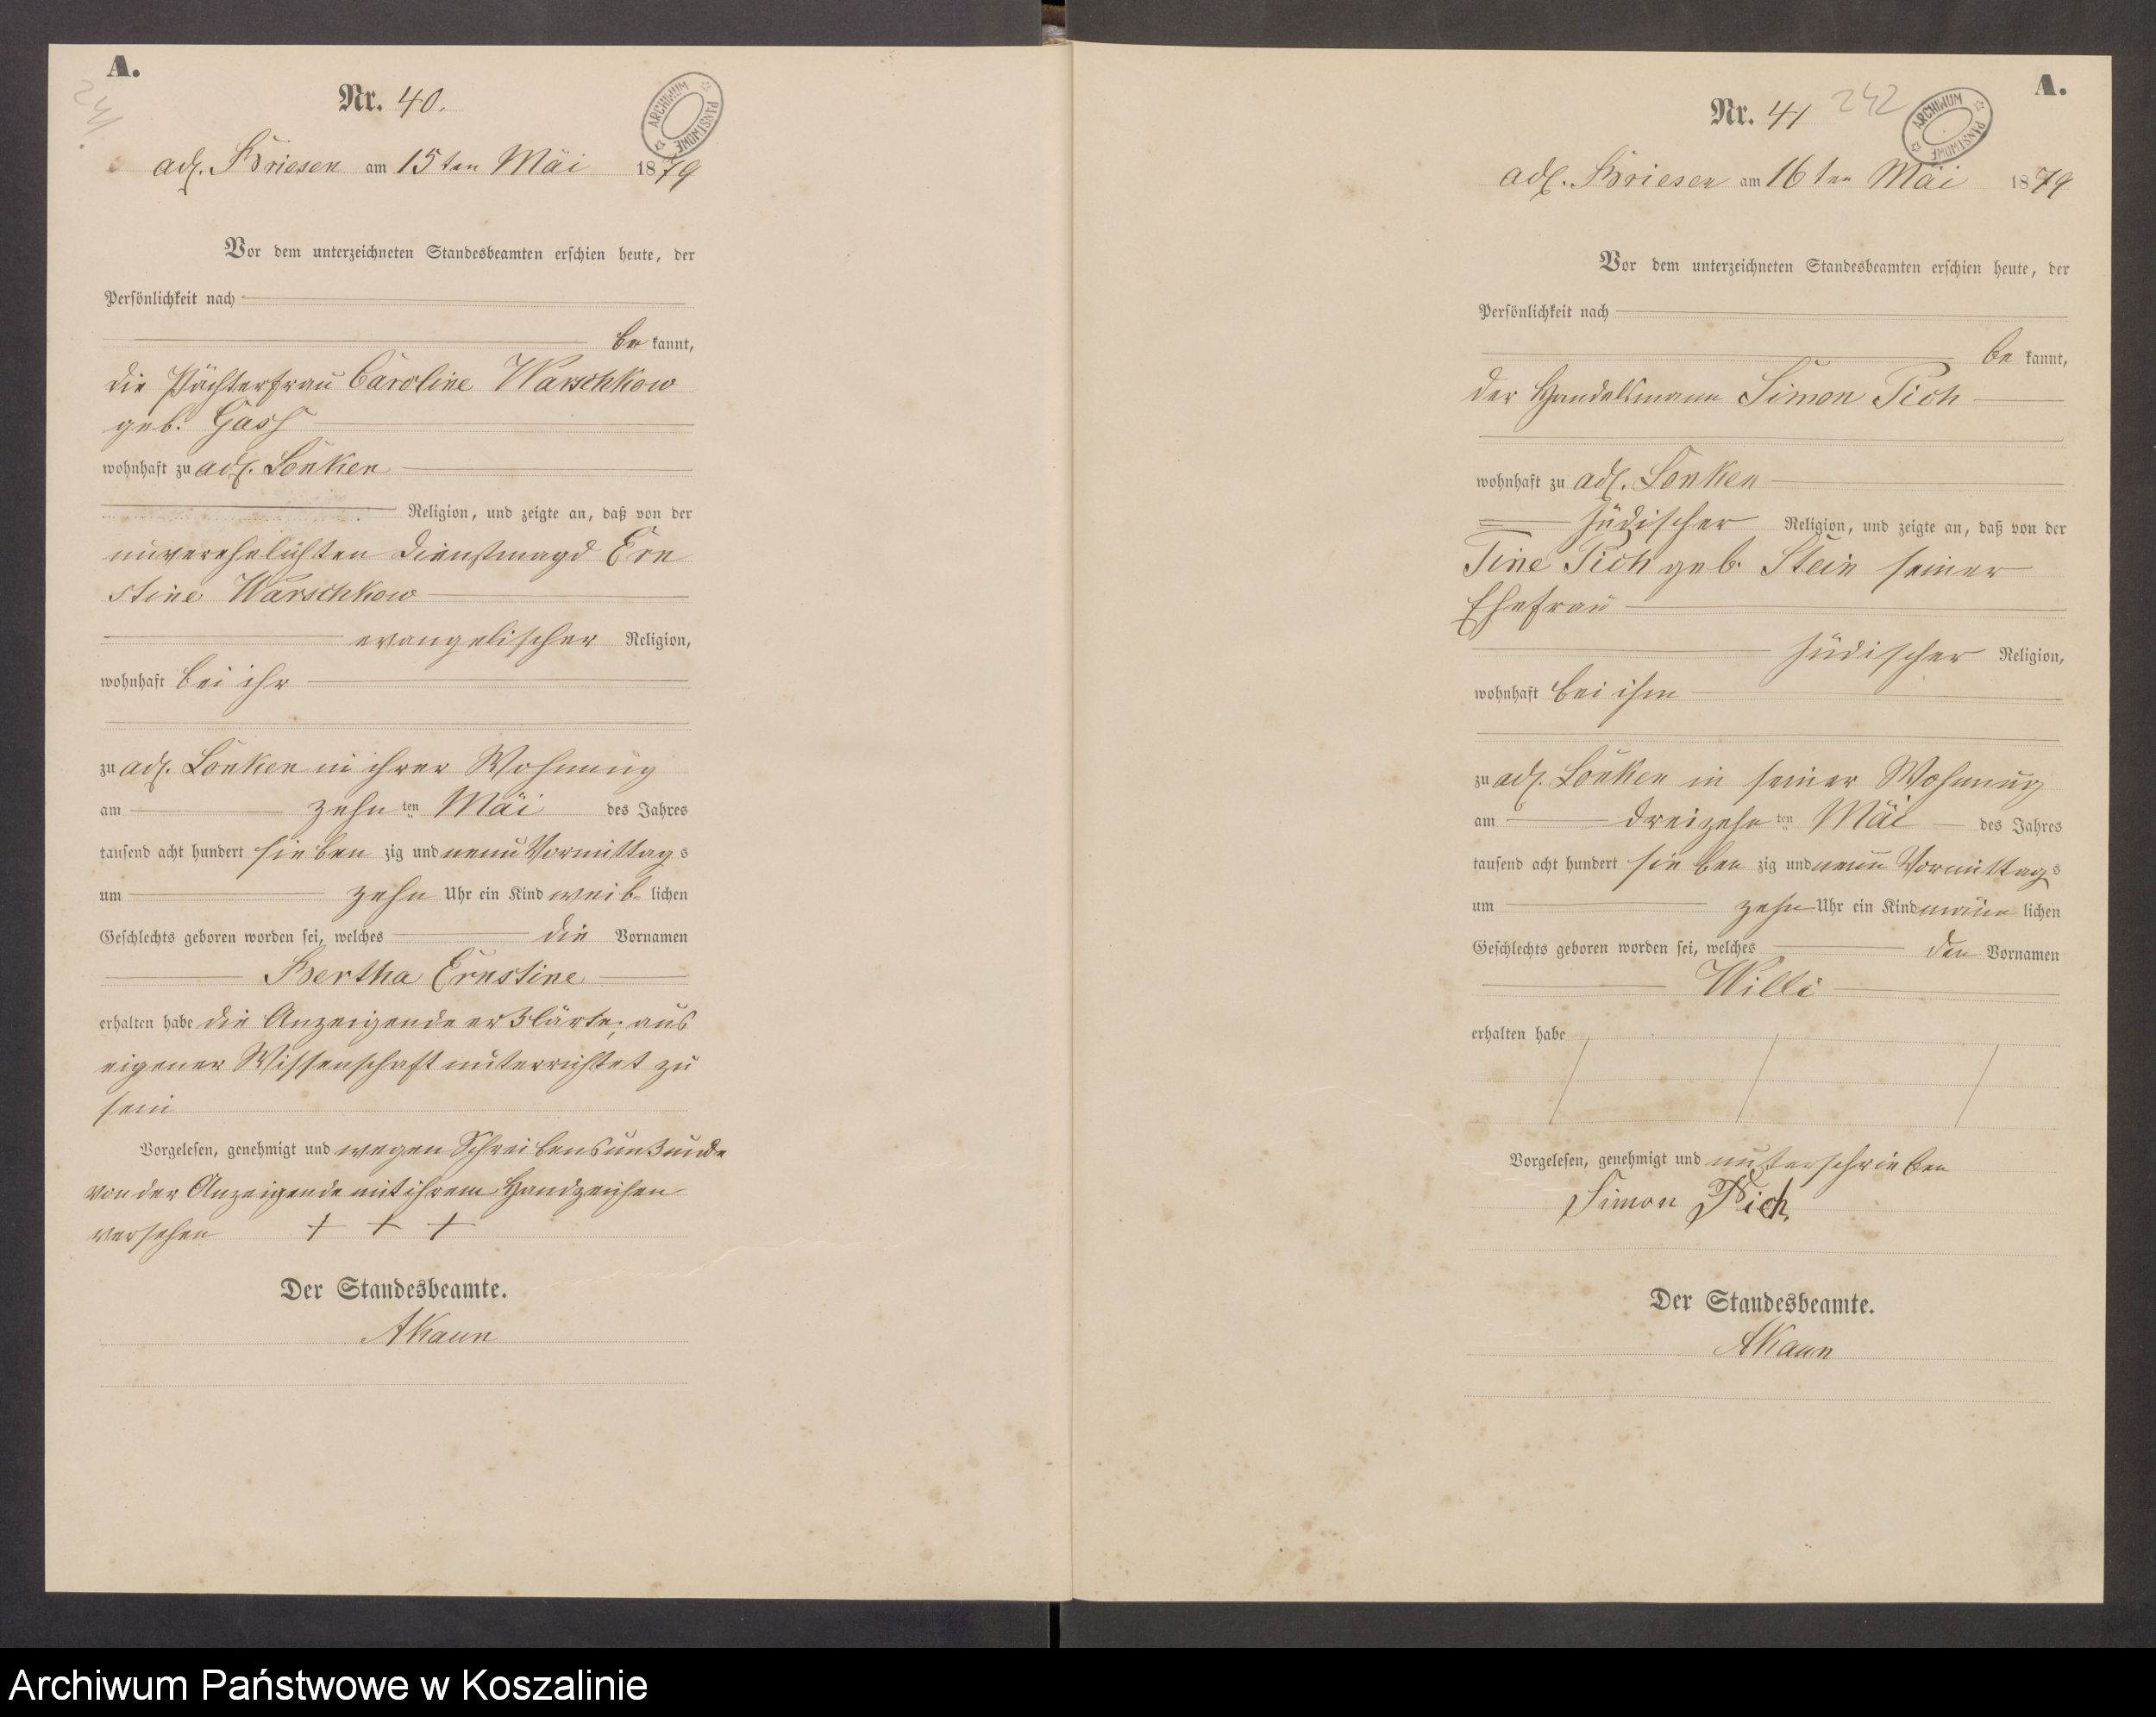 A.
241.
Nr. 40.
ARCHIWUM PAŃSTWOWE
adl. Briesen am 15ten Mai 1879
Vor dem unterzeichneten Standesbeamten erschien heute, der
Persönlichkeit nach
be kannt,
die Pächterfrau Caroline Warschkow
geb. Gass
wohnhaft zu adl. Lonken
Religion, und zeigte an, daß von der
unverehelichten Dienstmagd Ern
stine Warschkow
evangelischer Religion,
wohnhaft bei ihr
zu adl. Lonken in ihrer Wohnung
am zehn ten Mai des Jahres
tausend acht hundert sieben zig und neun Vormittag s
um zehn Uhr ein Kind weib lichen
Geschlechts geboren worden sei, welches die Vornamen
Bertha Ernstine
erhalten habe die Anzeigende erklärte, aus
eigener Wissenschaft unterrichtet zu
sein
Vorgelesen, genehmigt und wegen Schreibensunkunde
von der Anzeigende mit ihrem Handzeichen
versehen + + +
Der Standesbeamte.
AKaun
A.
Nr. 41
242
ARCHIWUM PAŃSTWOWE
adl. Briesen am 16ten Mai 1879
Vor dem unterzeichneten Standesbeamten erschien heute, der
Persönlichkeit nach
be kannt,
der Handelsmann Simon Pich
wohnhaft zu adl. Lonken
jüdischer Religion, und zeigte an, daß von der
Tine Pich geb. Stein seiner
Ehefrau
jüdischer Religion,
wohnhaft bei ihm
zu adl. Lonken in seiner Wohnung
am dreizehn ten Mai des Jahres
tausend acht hundert sieben zig und neun Vormittag s
um zehn Uhr ein Kind männ lichen
Geschlechts geboren worden sei, welches den Vornamen
Willi
erhalten habe
Vorgelesen, genehmigt und unterschrieben
Simon Pich.
Der Standesbeamte.
AKaun
Archiwum Państwowe w Koszalinie